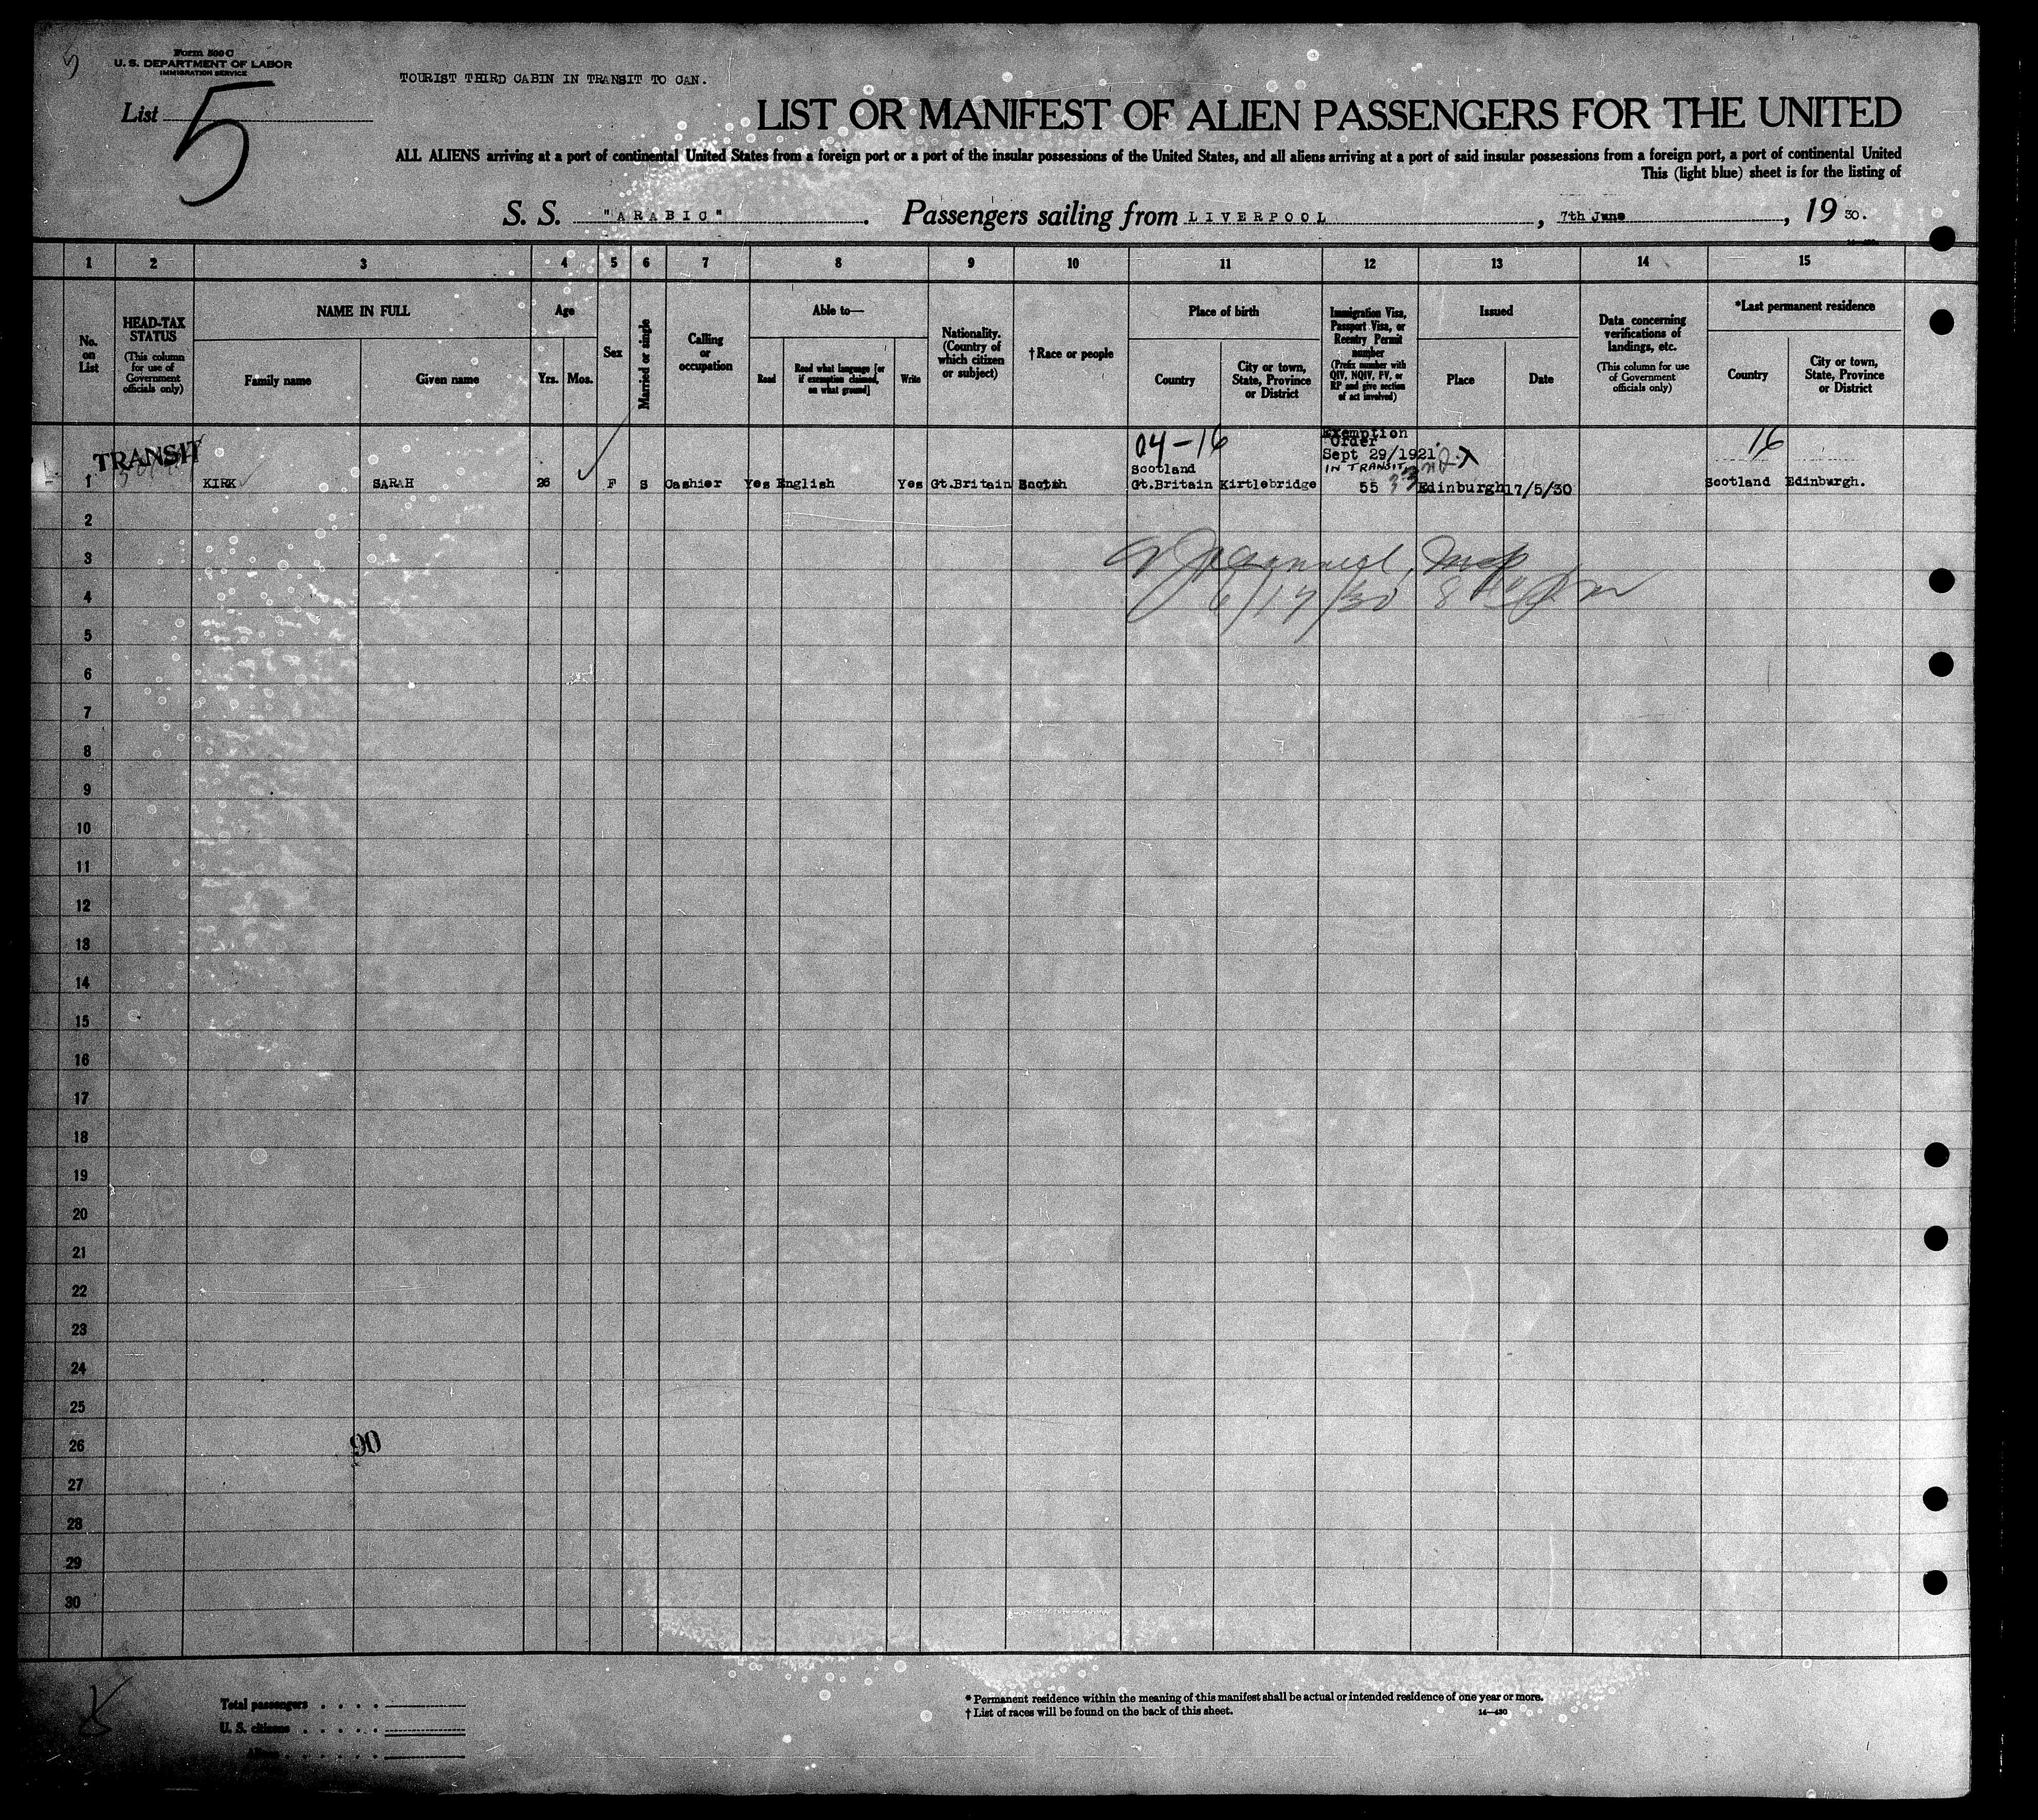 Form 500 C
U. S. DEPARTMENT OF LABOR
IMMIGRATION SERVICE
TOURIST THIRD CABIN IN TRANSIT TO CAN.
List 5
LIST OR MANIFEST OF ALIEN PASSENGERS FOR THE UNITED
ALL ALIENS arriving at a port of continental United States from a foreign port or a port of the insular possessions of the United States, and all aliens arriving at a port of said insular possessions from a foreign port, a port of continental United
This (light blue) sheet is for the listing of
S. S. "ARABIC". Passengers sailing from LIVERPOOL, 7th June, 19 30.
1 2 3 4 5 6 7 8 9 10 11 12 13 14 15
No. on List
HEAD-TAX STATUS
(This column for use of Government officials only)
NAME IN FULL
Family name
Given name
Age
Yrs.
Mos.
Sex
Married or single
Calling or occupation
Able to—
Read
Read what language [or if exemption claimed, on what ground]
Write
Nationality. (Country of which citizen or subject)
†Race or people
Place of birth
Country
City or town, State, Province or District
Immigration Visa, Passport Visa, or Reentry Permit number
(Prefix number with QIV, NQIV, PV, or RP and give section of act involved)
Issued
Place
Date
Data concerning verifications of landings, etc.
(This column for use of Government officials only)
*Last permanent residence
Country
City or town, State, Province or District
TRANSIT
04-16
Exemption
Order
Sept 29/1921.
IN TRANSIT
16
Scotland
1 KIRK SARAH 26 F S Cashier Yes English Yes Gt.Britain Scotch Gt.Britain Kirtlebridge 55 Edinburgh 17/5/30 Scotland Edinburgh.
2
3
4
6/17/30 8
5
6
7
8
9
10
11
12
13
14
15
16
17
18
19
20
21
22
23
24
25
26 90
27
28
29
30
Total passengers . . . .
U. S. citizens . . . . .
Aliens . . . . . .
* Permanent residence within the meaning of this manifest shall be actual or intended residence of one year or more.
† List of races will be found on the back of this sheet.
14—430